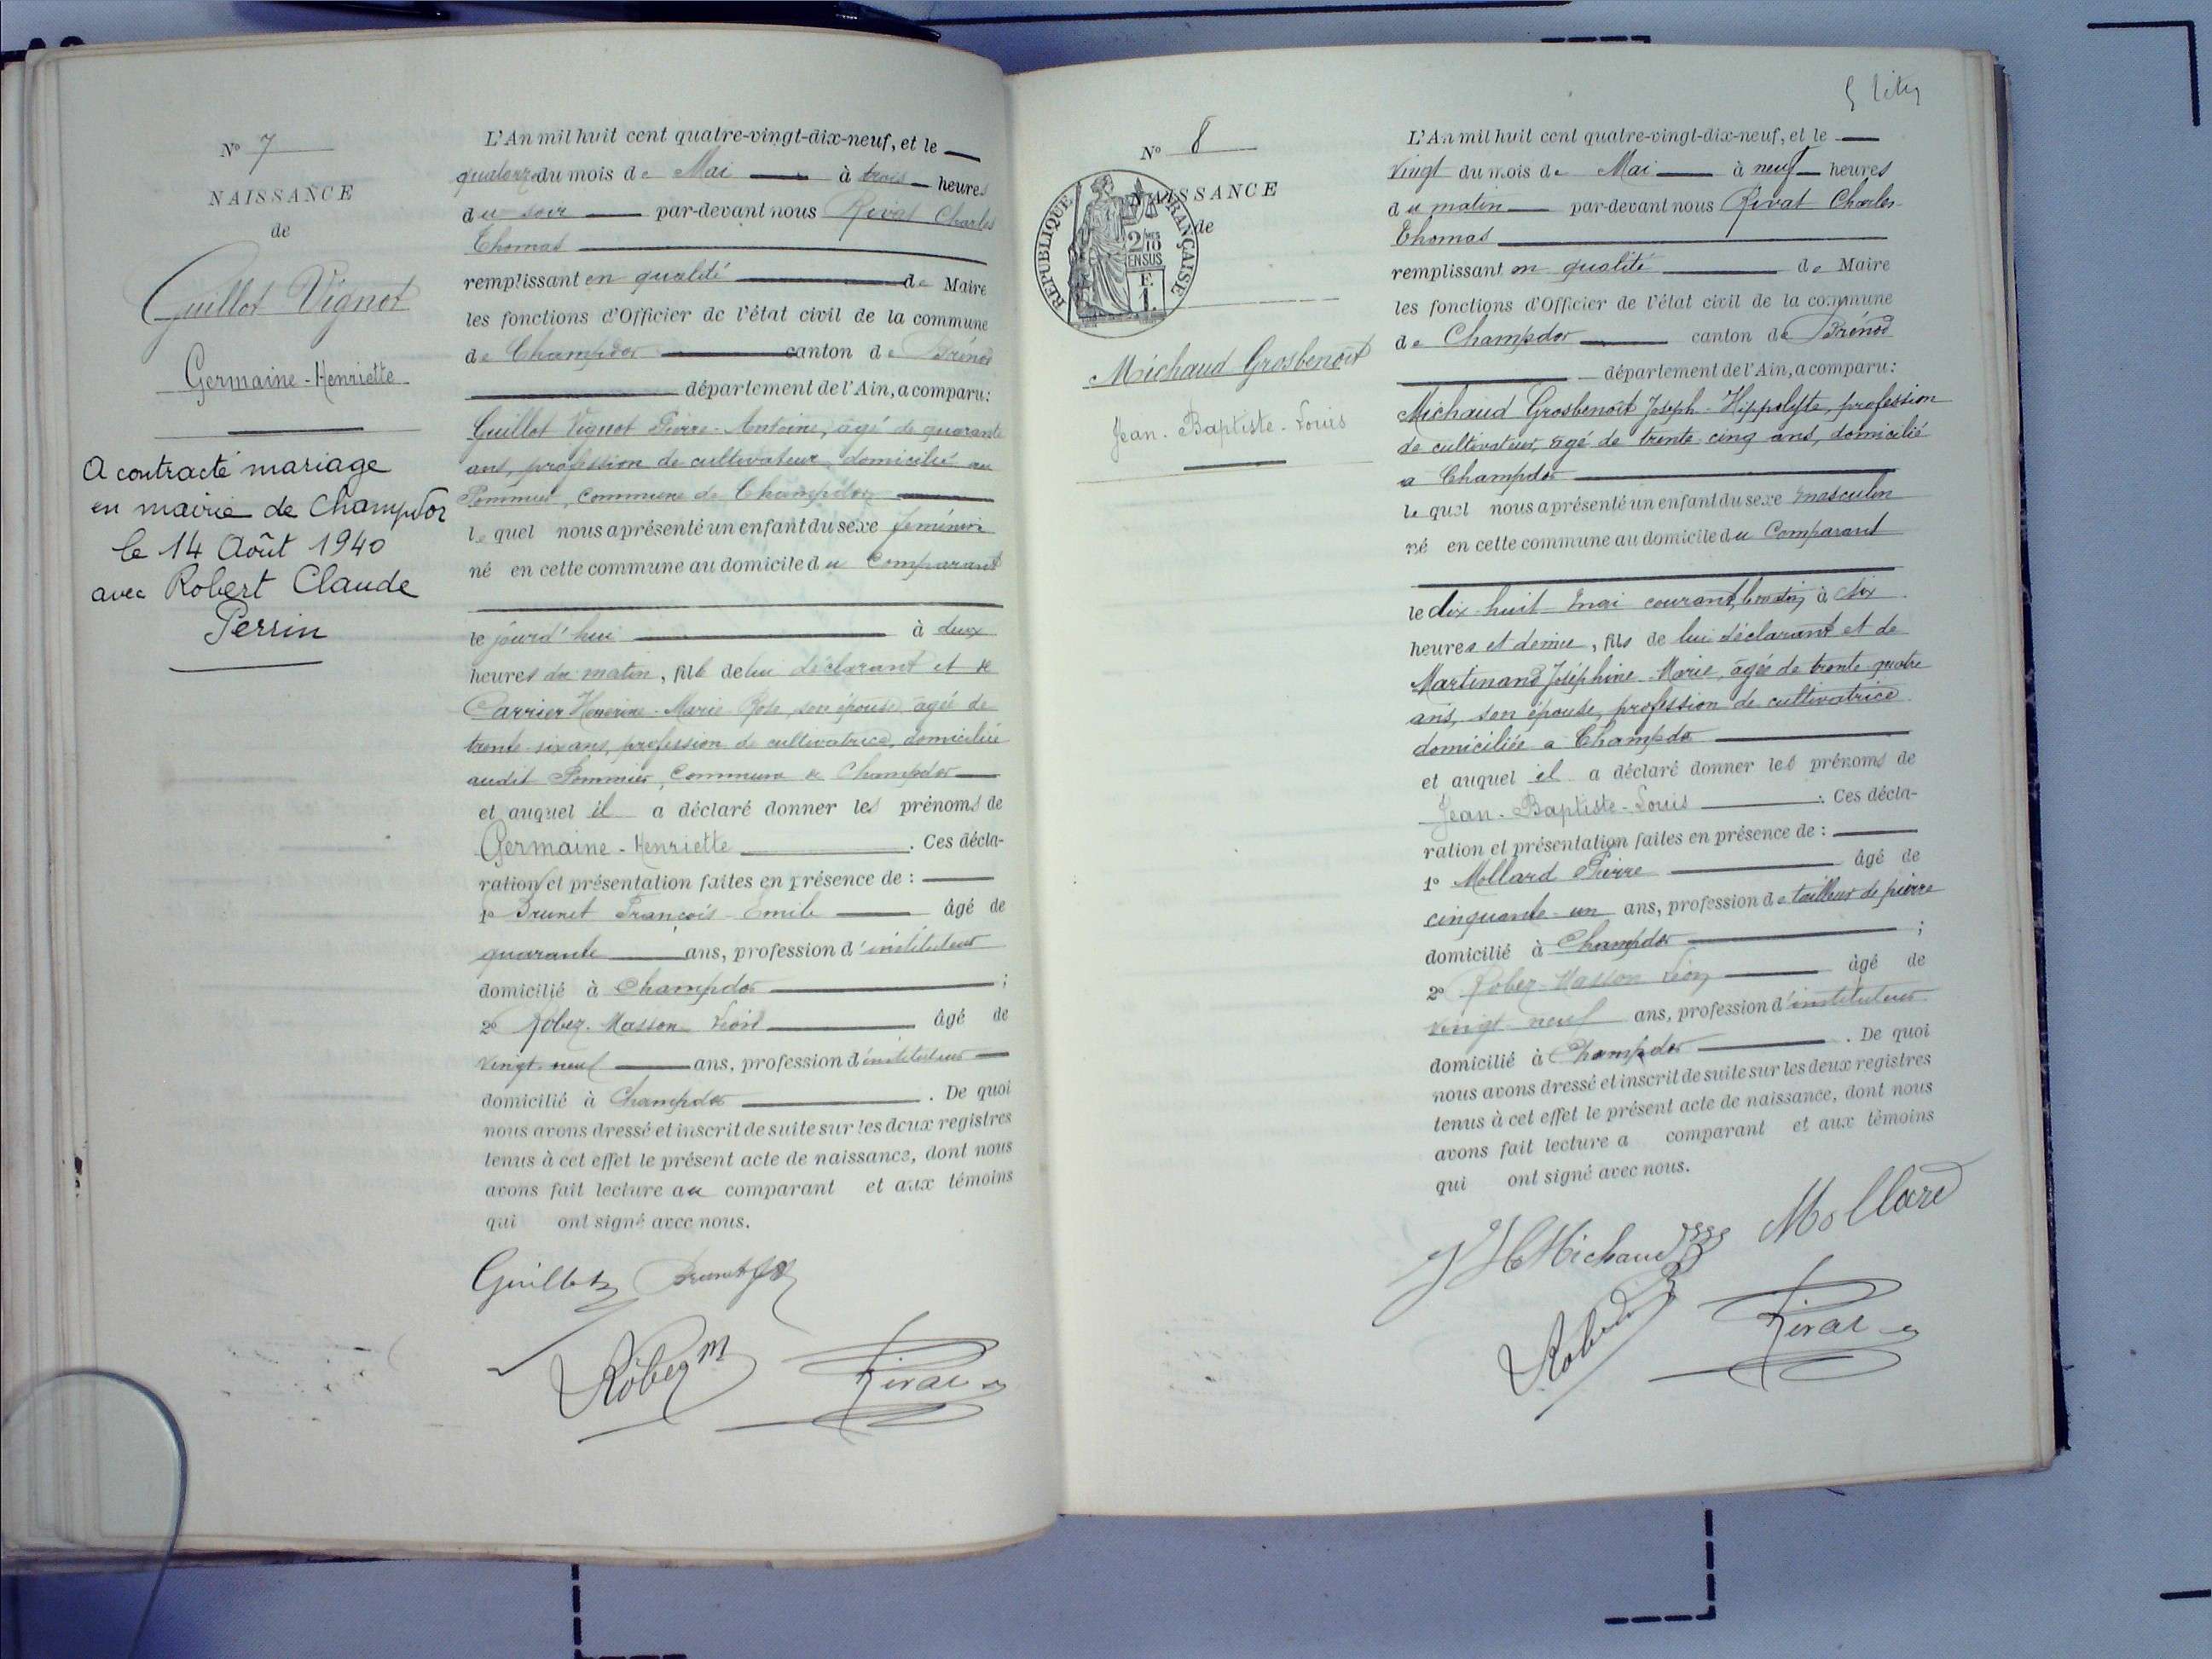 N° 7
NAISSANCE
de
Guillot Vignot
Germaine-Henriette
A contracté mariage
en mairie de Champdor
le 14 Août 1940
avec Robert Claude
Perrin
L'An mil huit cent quatre-vingt-dix-neuf, et le
quatorze du mois de Mai à trois heures
du soir par-devant nous Rivat Charles
Thomas
remplissant en qualité de Maire
les fonctions d'Officier de l'état civil de la commune
de Champdor canton de Brénod
département de l'Ain, a comparu:
Guillot Vignot Pierre-Antoine, agé de quarante
ans, profession de cultivateur, domicilié au
Pommier, commune de Champdor
lequel nous a présenté un enfant du sexe feminin
né en cette commune au domicile du Comparant
le jourd'hui à deux
heures du matin, fille de lui déclarant et de
Carrier Marie-Rose, son épouse, agée de
trente-six ans, profession de cultivatrice, domiciliée
audit Pommier, Commune de Champdor
et auquel il a déclaré donner les prénoms de
Germaine-Henriette. Ces décla-
ration et présentation faites en présence de :
1° Brunet François-Emile âgé de
quarante ans, profession d'instituteur
domicilié à Champdor ;
2° Robez-Masson Léon âgé de
vingt-neuf ans, profession d'instituteur
domicilié à Champdor. De quoi
nous avons dressé et inscrit de suite sur les deux registres
tenus à cet effet le présent acte de naissance, dont nous
avons fait lecture au comparant et aux témoins
qui ont signé avec nous.
Guillot Brunet
Robez M Rivat
5
N° 8
NAISSANCE
de
REPUBLIQUE FRANÇAISE
2/10 MES
EN SUS
E.
1.
Michaud Grosbenoit
Jean-Baptiste-Louis
L'An mil huit cent quatre-vingt-dix-neuf, et le
vingt du mois de Mai à neuf heures
du matin par-devant nous Rivat Charles
Thomas
remplissant en qualité de Maire
les fonctions d'Officier de l'état civil de la commune
de Champdor canton de Brénod
département de l'Ain, a comparu:
Michaud Grosbenoit Joseph-Hippolyte, profession
de cultivateur, agé de trente-cinq ans, domicilié
a Champdor
lequel nous a présenté un enfant du sexe masculin
né en cette commune au domicile du Comparant
le dix-huit mai courant, à dix
heures et demie, fils de lui déclarant et de
Martinand Joséphine-Marie, agée de trente-quatre
ans, son épouse, profession de cultivatrice
domiciliée a Champdor
et auquel il a déclaré donner les prénoms de
Jean-Baptiste-Louis. Ces décla-
ration et présentation faites en présence de :
1° Mollard Pierre âgé de
cinquante-un ans, profession de tailleur de pierre
domicilié à Champdor ;
2° Robez-Masson Léon âgé de
vingt-neuf ans, profession d'instituteur
domicilié à Champdor. De quoi
nous avons dressé et inscrit de suite sur les deux registres
tenus à cet effet le présent acte de naissance, dont nous
avons fait lecture a comparant et aux témoins
qui ont signé avec nous.
J H Michaud Mollard
Robez Rivat